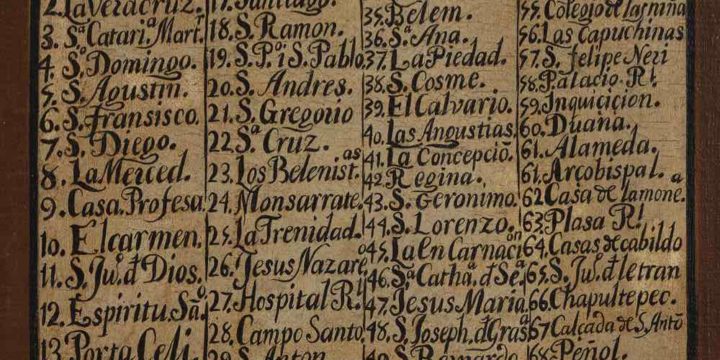 2. La Veracruz.
3. Sᵃ. Catari.ᵃ Mart.ʳ
4. Sº. Domingo.
5. S. Agustin.
6. S. Fransisco.
7. S. Diego.
8. La Merced.
9. Casa. Profesa
10. El carmen.
11. S. Ju.º đ Dios.
12. Espiritu. Sᵒ.
13. Porta Celi.
17. Santiago.
18. S. Ramon.
19. S. P.º i S. Pablo.
20. S. Andres.
21. S. Gregorio
22. Sᵃ. Cruz.
23. Los Belenist.ᵃˢ
24. Monsarrate.
25. La Trenidad.
26. Jesus Nazare.º
27. Hospital R.ˡ
28. Campo Santo.
29. S. Anton
35. Belem.
36. Sᵃ. Ana.
37. La Piedad.
38. S. Cosme.
39. El Calvario.
40. Las Angustias.
41. La Concepciõ.
42. Regina.
43. S. Geronimo.
44. S. Lorenzo.
45. La En Carnaciºⁿ
46. Sᵃ. Cathᵃ. đ Seᵃ.
47. Jesus Maria.
48. S. Joseph. đ Grasᵃ
49. S. Bernardo.
55. Colegio de las niñas
56. Las Capuchinas
57. S. felipe Neri
58. Palacio. R.ˡ
59. Inquicicion.
60. Duana.
61. Alameda.
61. Arcobispal.
62. Casa de la mone.ᵃ
63. Plasa R.ˡ
64. Casas de cabildo
65. S. Ju.º đ letran
66. Chapultepec.
67. Calçada de S. Antº
68. Peñol.